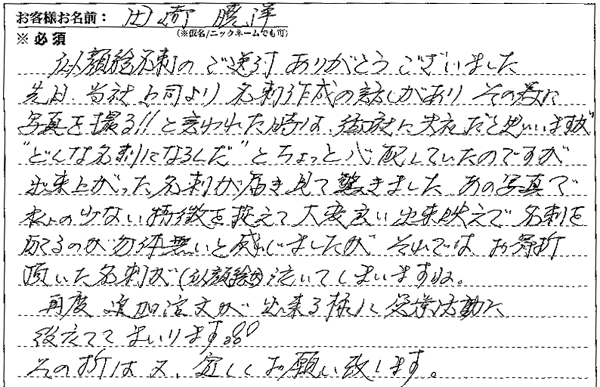 お客様お名前：田崎 暁洋
※必須
(※仮名/ニックネームでも可)
似顔絵名刺のご送付 ありがとうございました
先日 当社上司より 名刺作成の話しがあり その為に
写真を撮る!! と言われた時は だと思いますが
"どんな名刺になるんだ"とちょっと心配していたのですが
出来上がった名刺が届き見て驚きました あの写真で
少ない特徴を捉えて 大変良い出来映えで 名刺を
配るのが勿体無いと感じましたが それではお寄折
頂いた名刺が(似顔絵が)泣いてしまいますね。
再度 追加注文が出来る様に営業活動に
励んでまいります。
その折は又、宜しくお願い致します。